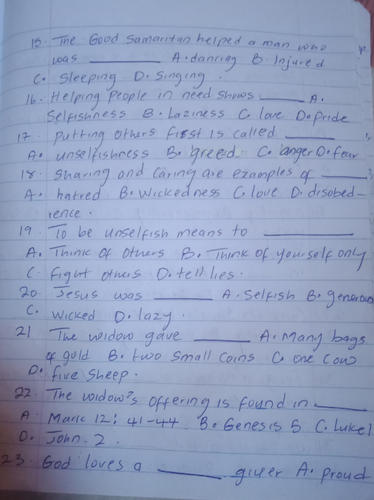 15. The Good Samaritan helped a man who
was ________ A. dancing B. Injured
C. Sleeping D. Singing.
16. Helping people in need shows ____ A.
Selfishness B. Laziness C. love D. pride
17. putting others first is called ____
A. unselfishness B. greed C. anger D. fear
18. sharing and caring are examples of ____
A. hatred B. wickedness C. love D. disobed-
ience.
19. To be unselfish means to ________
A. Think of others B. Think of yourself only
C. Fight others D. tell lies.
20. Jesus was ______ A. Selfish B. generous
C. wicked D. lazy.
21 The widow gave ______ A. Many bags
of gold B. two small coins C. one cow
D. five sheep.
22. The widow's offering is found in ____
A. Mark 12: 41-44 B. Genesis 5 C. Luke 1
D. John 2.
23. God loves a ______ giver A. proud